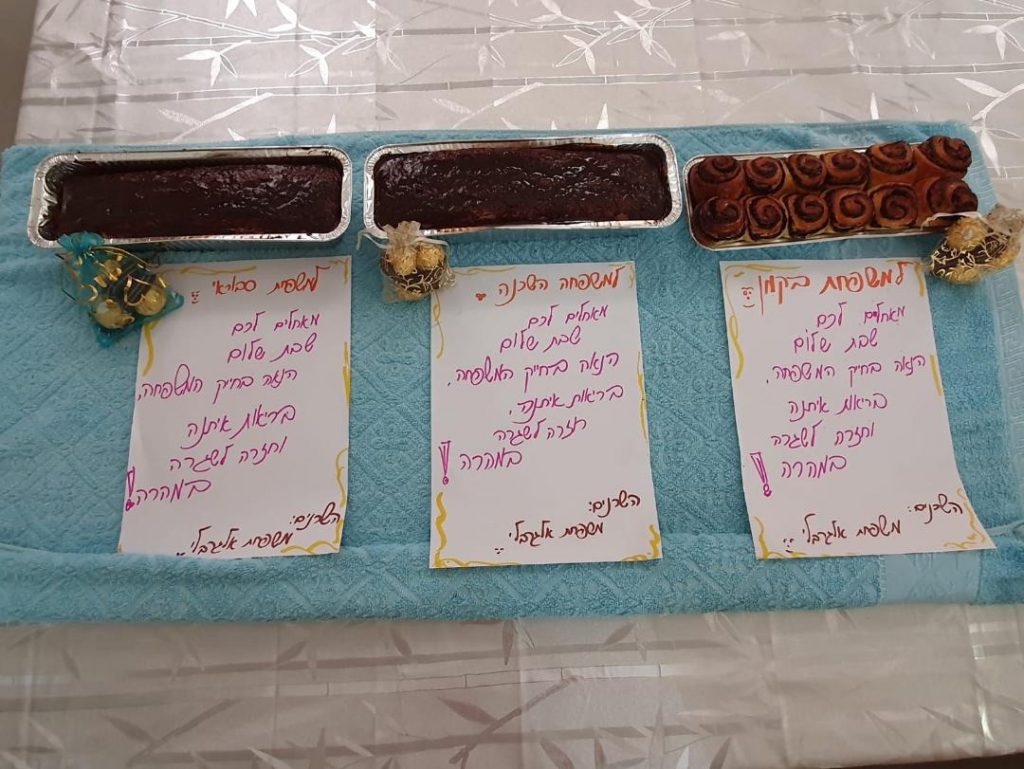 למשפחת סבוראי
מאחלים לכם
שבת שלום
הנאה בחיק המשפחה,
בריאות איתנה
וחזרה לשגרה
במהרה!
השכנים:
משפחת אלגרבלי
למשפחה השכנה
מאחלים לכם
שבת שלום
הנאה בחיק המשפחה,
בריאות איתנה,
חזרה לשגרה
במהרה!
השכנים:
משפחת אלגרבלי
למשפחת בקמן
מאחלים לכם
שבת שלום
הנאה בחיק המשפחה,
בריאות איתנה
וחזרה לשגרה
במהרה!
השכנים:
משפחת אלגרבלי